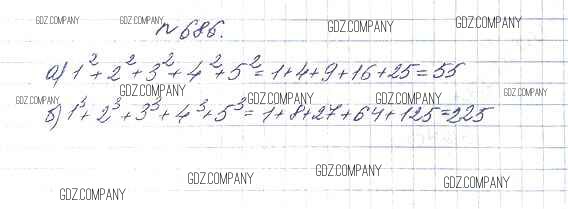 GDZ.COMPANY GDZ.COMPANY №686. GDZ.COMPANY GDZ.COMPANY
а) 1² + 2² + 3² + 4² + 5² = 1+4+9+16+25=55
GDZ.COMPANY GDZ.COMPANY GDZ.COMPANY GDZ.COMPANY GDZ.COMPANY
б) 1³ + 2³ + 3³ + 4³ + 5³ = 1+8+27+64+125=225
GDZ.COMPANY GDZ.COMPANY GDZ.COMPANY GDZ.COMPANY